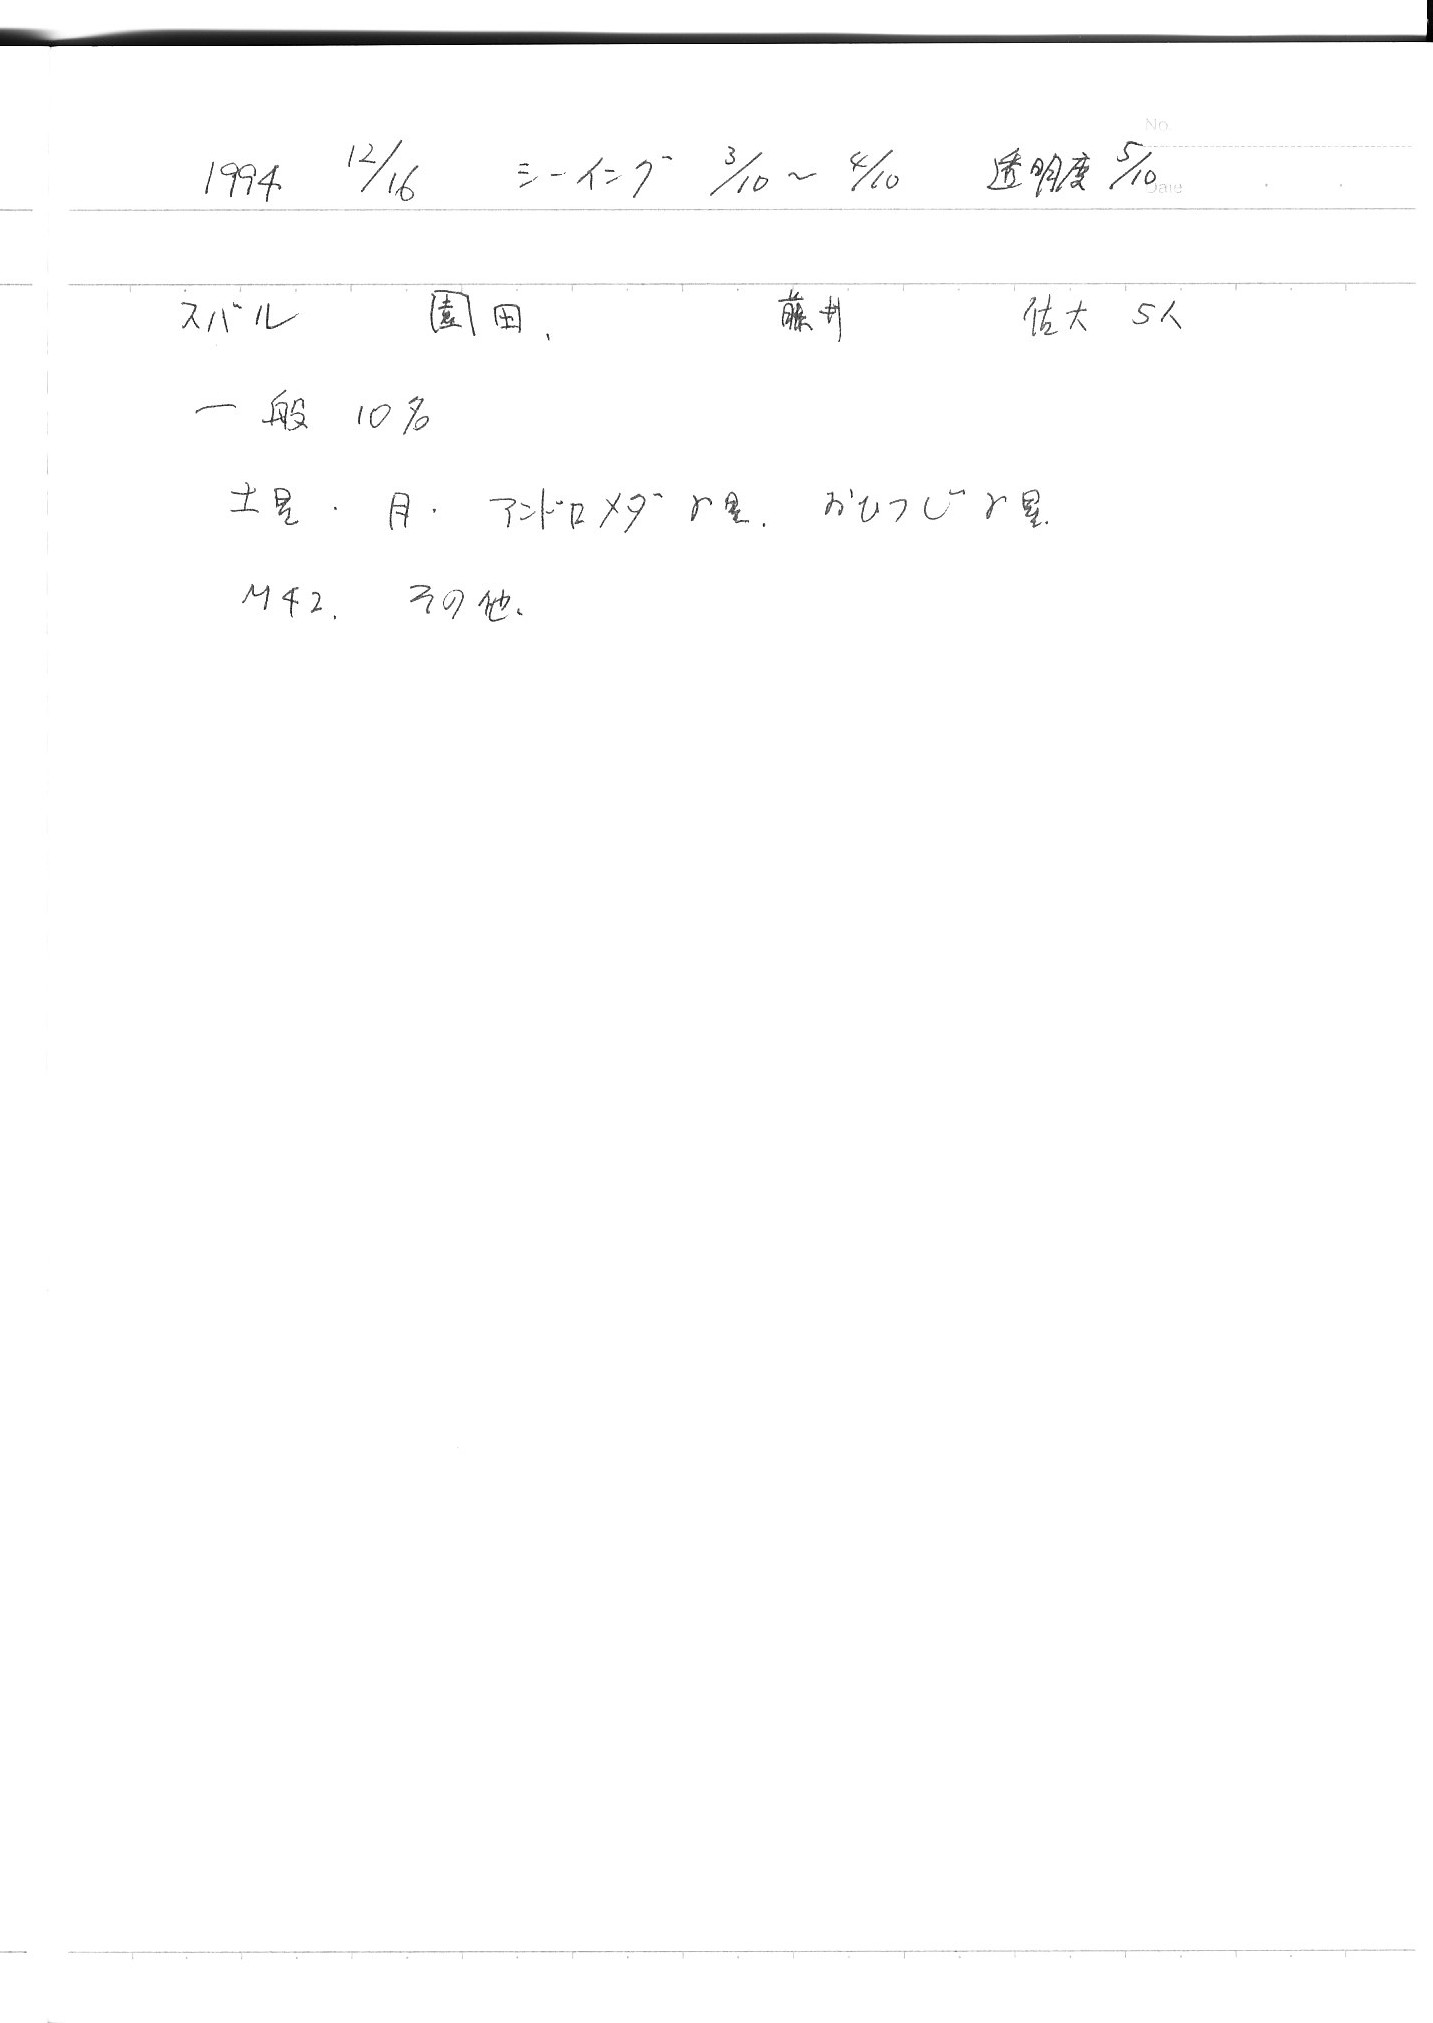 No.
1994 12/16 シーイング 3/10 ～ 4/10 透明度 5/10
Date
スバル 園田. 藤井 佐大 5人
一般 10名
土星・月・アンドロメダγ星. おひつじγ星.
M42. その他.